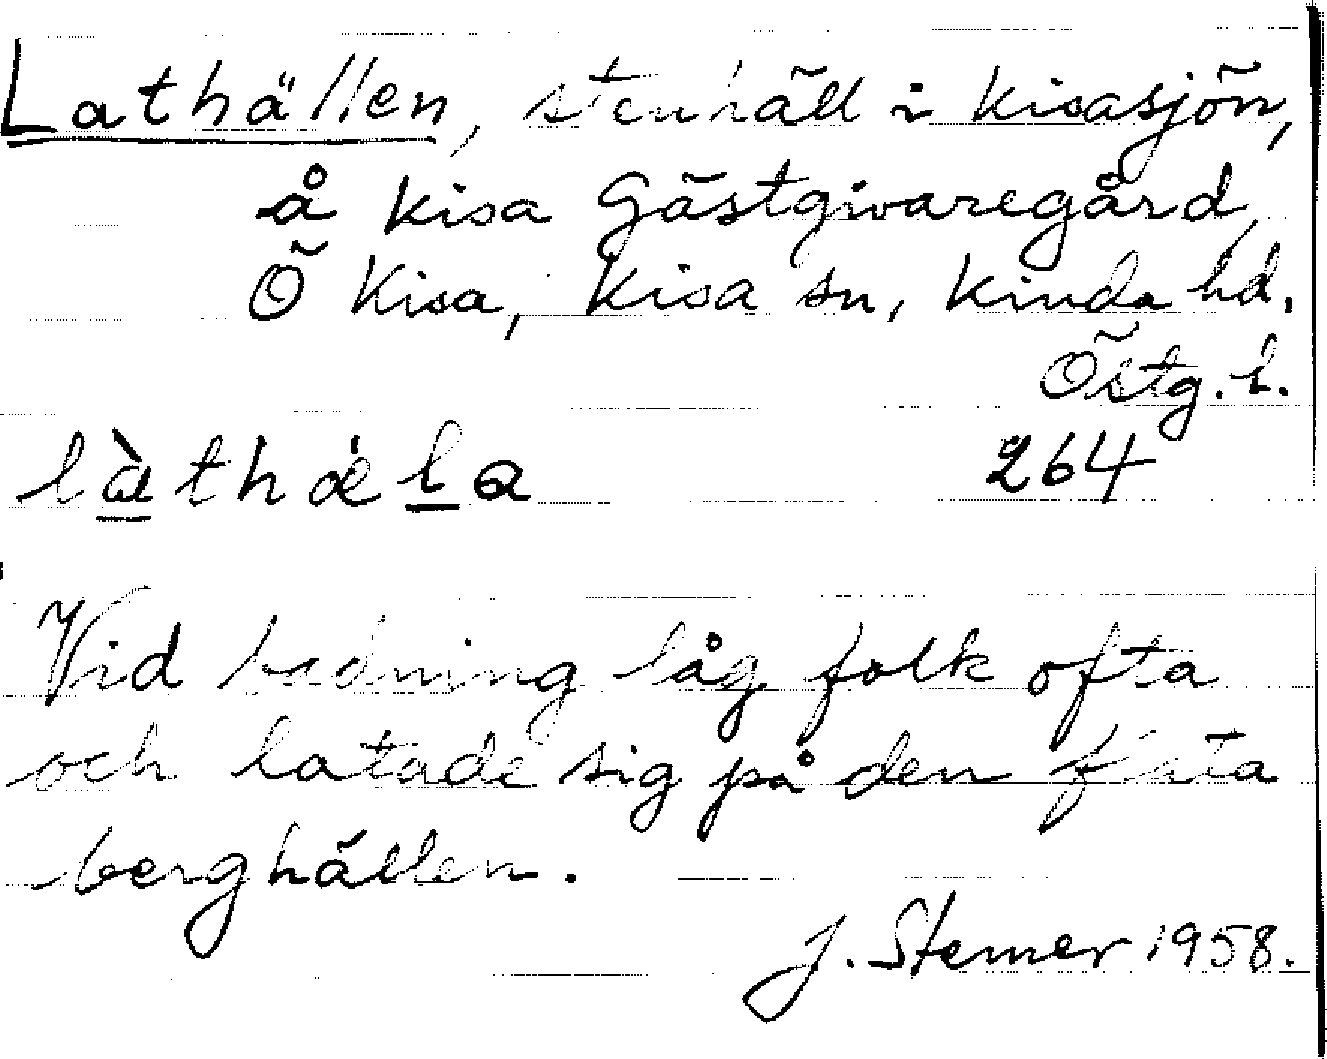 Lathällen, stenhäll i Kisasjön,
å Kisa Gästgivaregård,
Ö Kisa, Kisa sn, Kinda hd.
Östg. l.
làthǽla 264
Vid badning låg folk ofta
och latade sig på den flata
berghällen.
J. Stemer 1958.